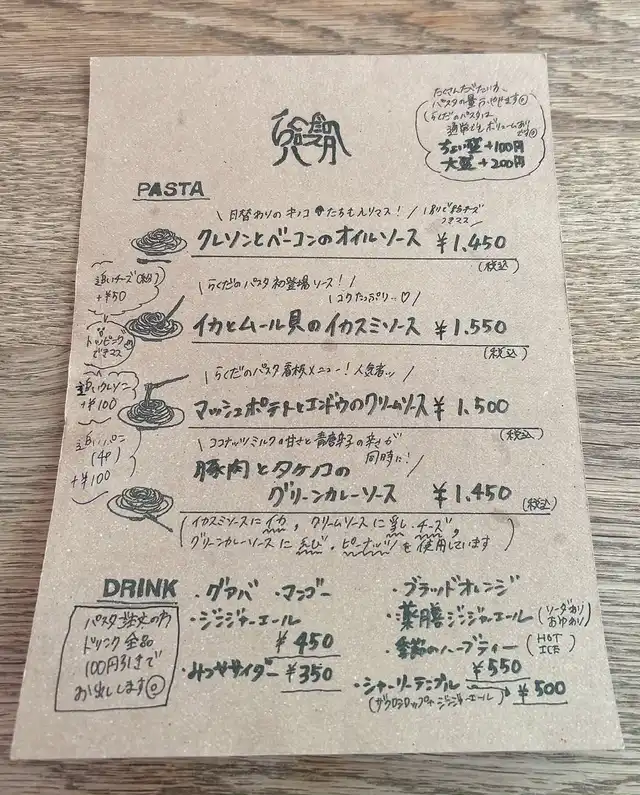 たくさんたべたい方、
パスタの量ふやせます
らくだのパスタは
通常でもボリュームあり
です
ちょい盛 +100円
大盛 +200円
PASTA
\ 日替わりのキノコたちも入りマス! /
クレソンとベーコンのオイルソース ¥1,450
(税込)
追いチーズ(粉)
+¥50
\ らくだのパスタ初登場ソース! /
コクたっぷり…♡ /
イカとムール貝のイカスミソース ¥1,550
(税込)
トッピング
できマス
\ らくだのパスタ看板メニュー!人気者ッ /
追いクレソン
+¥100
マッシュポテトとエンドウのクリームソース ¥1,500
(税込)
(4P)
+¥100
\ ココナッツミルクの甘さと青唐辛子の辛さが
同時に! /
豚肉とタケノコの
グリーンカレーソース ¥1,450
(税込)
(イカスミソースにイカ、クリームソースに乳・チーズ、
グリーンカレーソースにえび・ピーナッツを使用しています)
DRINK
パスタご注文の方
ドリンク全品
100円引きで
お出しします
・グァバ ・マンゴー
・ジンジャーエール
¥450
・みつやサイダー ¥350
・ブラッドオレンジ
・薬膳ジンジャーエール (ソーダわり
おゆわり)
・季節のハーブティー (HOT
ICE)
¥550
・シャーリーテンプル
¥500
(ザクロシロップ+ジンジャーエール)